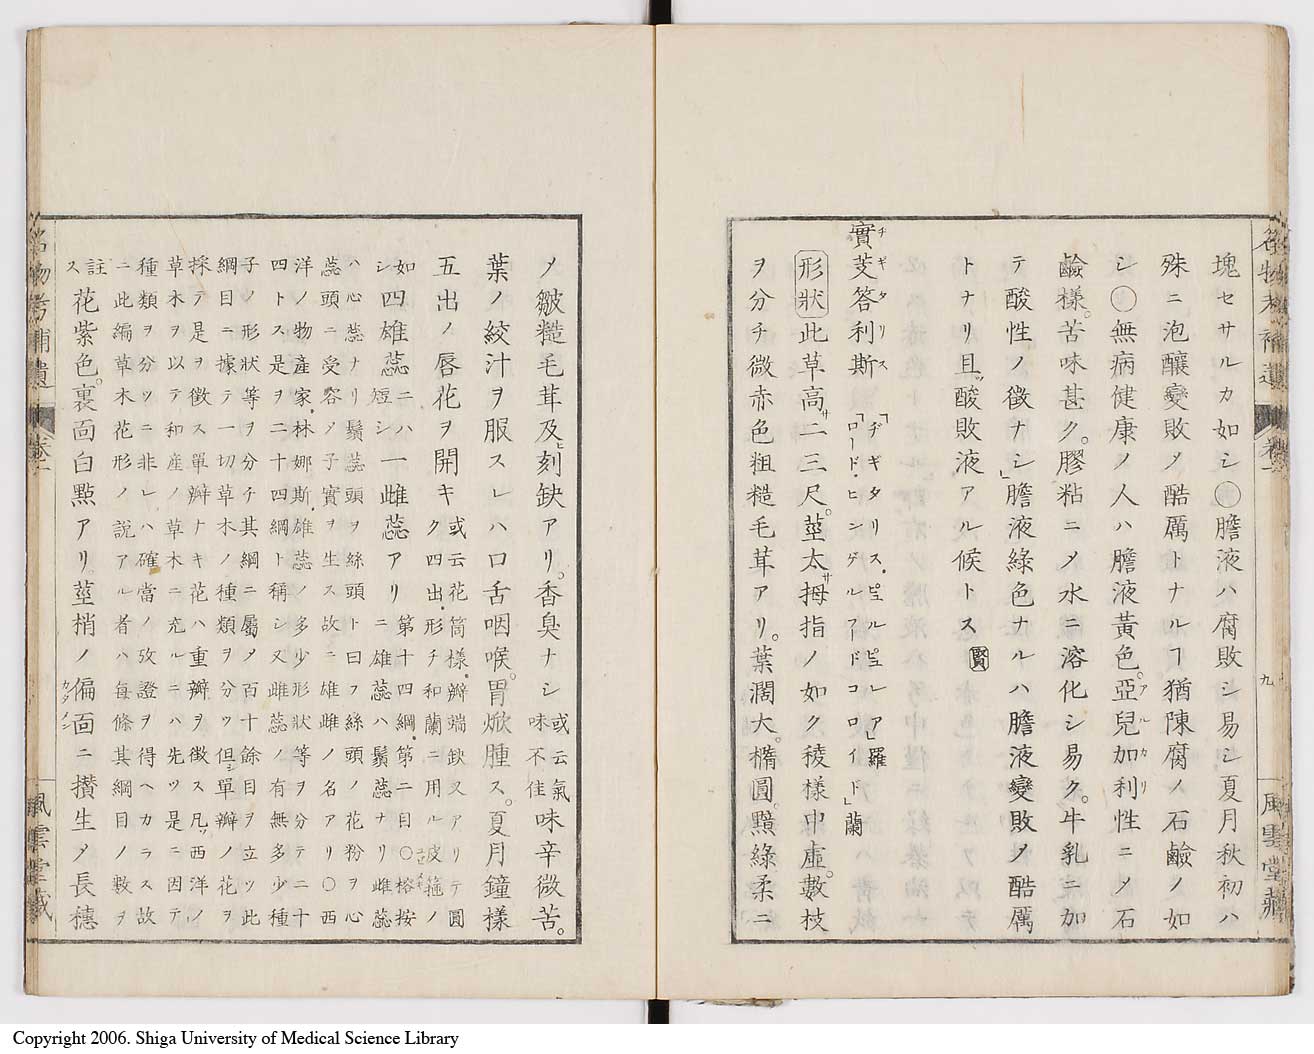 名物考補遺 巻一 九 風雲堂藏
塊セサルカ如シ○膽液ハ腐敗シ易シ夏月秋初ハ
殊ニ泡釀變敗メ酷厲トナルヿ猶陳腐ノ石鹼ノ如
シ○無病健康ノ人ハ膽液黃色。亞兒加利性ニメ石
アルカリ
鹼樣。苦味甚ク。膠粘ニメ水ニ溶化シ易ク。牛乳ニ加
テ酸性ノ徴ナシ」膽液綠色ナルハ膽液變敗メ酷厲
トナリ且ッ酸敗液アル候トス 賢
實芰答利斯 「ヂギタリス.ピュルピュレア」羅 「ロード.ヒンゲルフードコロイド」蘭
チギタリス
形狀 此草高サ二三尺。莖太サ拇指ノ如ク稜樣中虛。數枝
ヲ分チ微赤色粗糙毛茸アリ。葉濶大。橢圓。黯綠柔ニ
ノ皺糙毛茸及ヒ刻缺アリ。香臭ナシ 或云氣味不佳 味辛微苦。
葉ノ絞汁ヲ服スレハ口舌咽喉。胃焮腫ス。夏月鐘樣
五出ノ唇花ヲ開キ 或云花筒樣.瓣端缺又アリテ圓ク四出.形チ和蘭ニ用ル皮箍ノ
如シ 四雄蕊二ハ短シ 一雌蕊アリ 第十四綱.第二目○榕按ニ雄蕊ハ鬚蕊ナリ雌蕊
ハ心蕊ナリ鬚蕊頭ヲ絲頭ト曰フ絲頭ノ花粉ヲ心
蕊頭ニ受容ノ子實ヲ生ス故ニ雄雌ノ名アリ○西
洋ノ物產家.林娜斯.雄蕊ノ多少形狀等ヲ分テ二十
四トス是ヲ二十四綱ト稱シ又雌蕊ノ有無多少種
子ノ形狀等ヲ分チ其綱ニ屬メ百十餘目ヲ立ツ此
綱目ニ據テ一切草木ノ種類ヲ分ツ但シ單瓣ノ花ヲ
採テ是ヲ徴ス單瓣ナキ花ハ重瓣ヲ徴ス凡ッ西洋ノ
草木ヲ以テ和産ノ草木ニ充ルニハ先ツ是ニ因テ
種類ヲ分ツニ非レハ確當ノ攷證ヲ得ヘカラス故
ニ此編草木花形ノ說アル者ハ每條其綱目ノ數ヲ
註ス 花紫色。裏面白點アリ。莖梢ノ偏面ニ攅生メ長穗
カタメン
名物考補遺 巻一 風雲堂藏
Copyright 2006. Shiga University of Medical Science Library